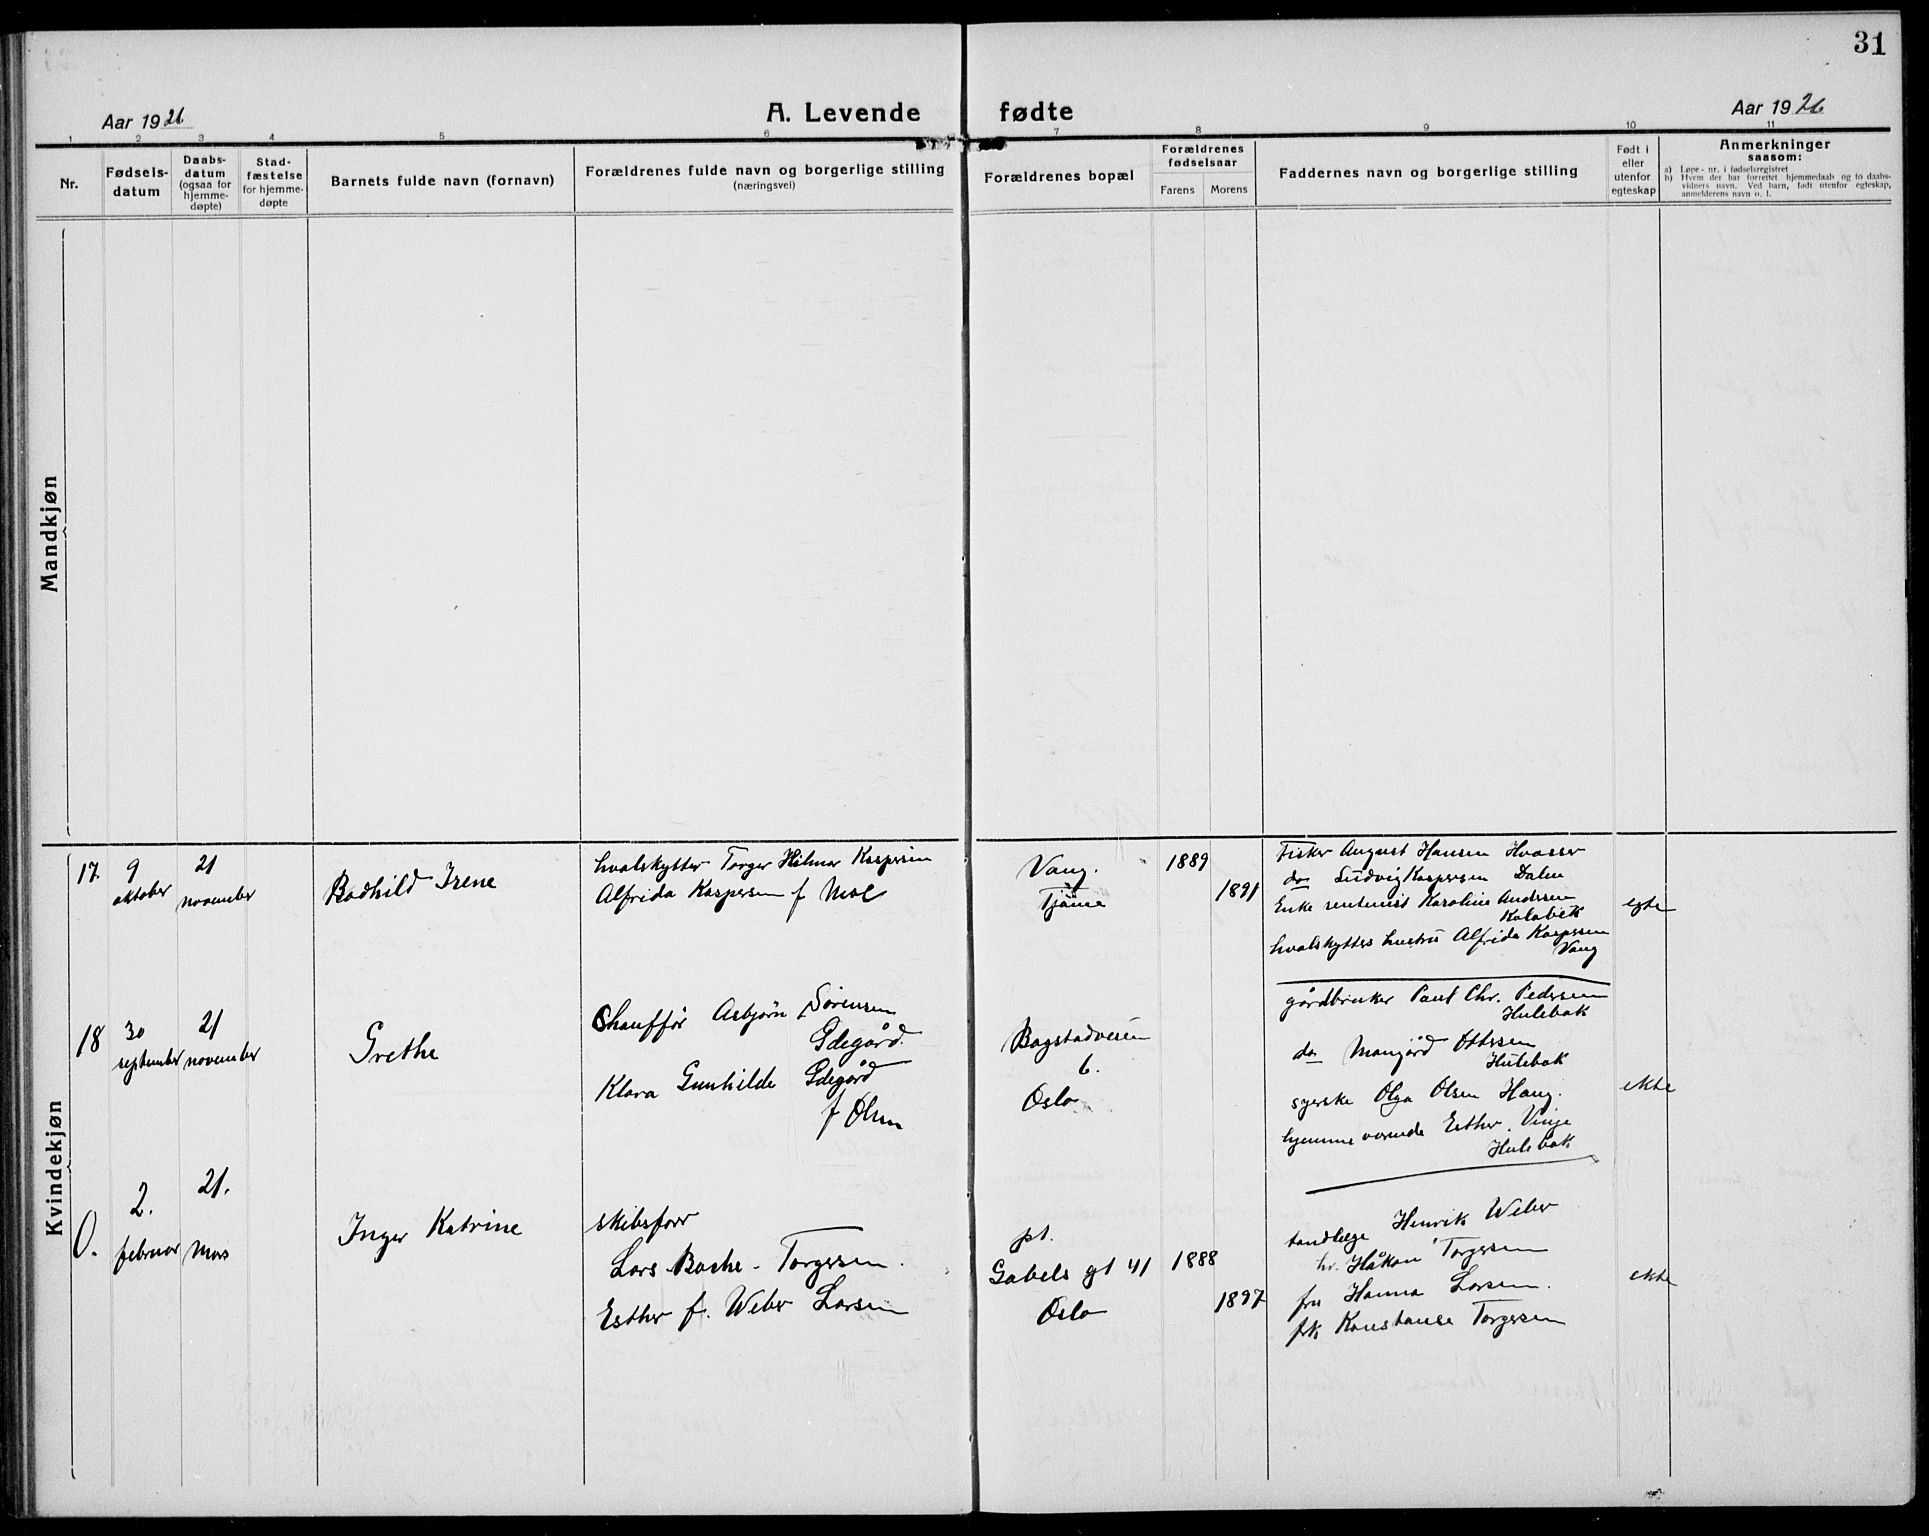 31
Aar 1926
A. Levende fødte
Aar 1926
1 2 3 4 5 6 7 8 9 10 11
Nr.
Fødsels-
datum
Daabs-
datum
(ogsaa for
hjemme-
døpte)
Stad-
fæstelse
for hjemme-
døpte
Barnets fulde navn (fornavn)
Forældrenes fulde navn og borgerlige stilling
(næringsvei)
Forældrenes bopæl
Forældrenes
fødselsaar
Farens Morens
Faddernes navn og borgerlige stilling
Født i
eller
utenfor
egteskap
Anmerkninger
saasom:
a) Løpe-nr. i fødselsregistret
b) Hvem der har forrettet hjemmedaab og to daabs-
vidners navn. Ved barn, født utenfor egteskap,
anmelderens navn o. l.
Mandkjøn
Kvindekjøn
17.
9
oktober
21
november
Bodhild Irene
hvalskytter Torger Hilmar Kaspersen
Alfrida Kaspersen f Moe
Vang.
Tjøme
1889
1891
Fisker August Hansen Hvasser
do Ludvig Kaspersen Dalen
Enke rentenist Karoline Andersen
hvalskytters hustru Alfrida Kaspersen
Vang
egte
18
30
september
21
november
Grethe
Chauffør Asbjørn Sørensen
Ødegård.
Klara Gunhilde Ødegård
f Olsen
Bogstadveien
6.
Oslo
gårdbruker Paul Chr. Pedersen
Hulebak
do Mangård Ottesen
Hulebak
syerske Olga Olsen Haug.
hjemmeværende Esther Vinje
Hulebak
ekte
0.
2.
februar
21.
mars
Inger Katrine
skibsfører
Lars Bache - Torgersen.
Esther f. Weber Larsen
pt.
Gabels gt 41
Oslo
1888
1897
tandlæge Henrik Weber
hr. Håkon Torgersen
fru Hanna Larsen.
frk Konstanse Torgersen
ekte